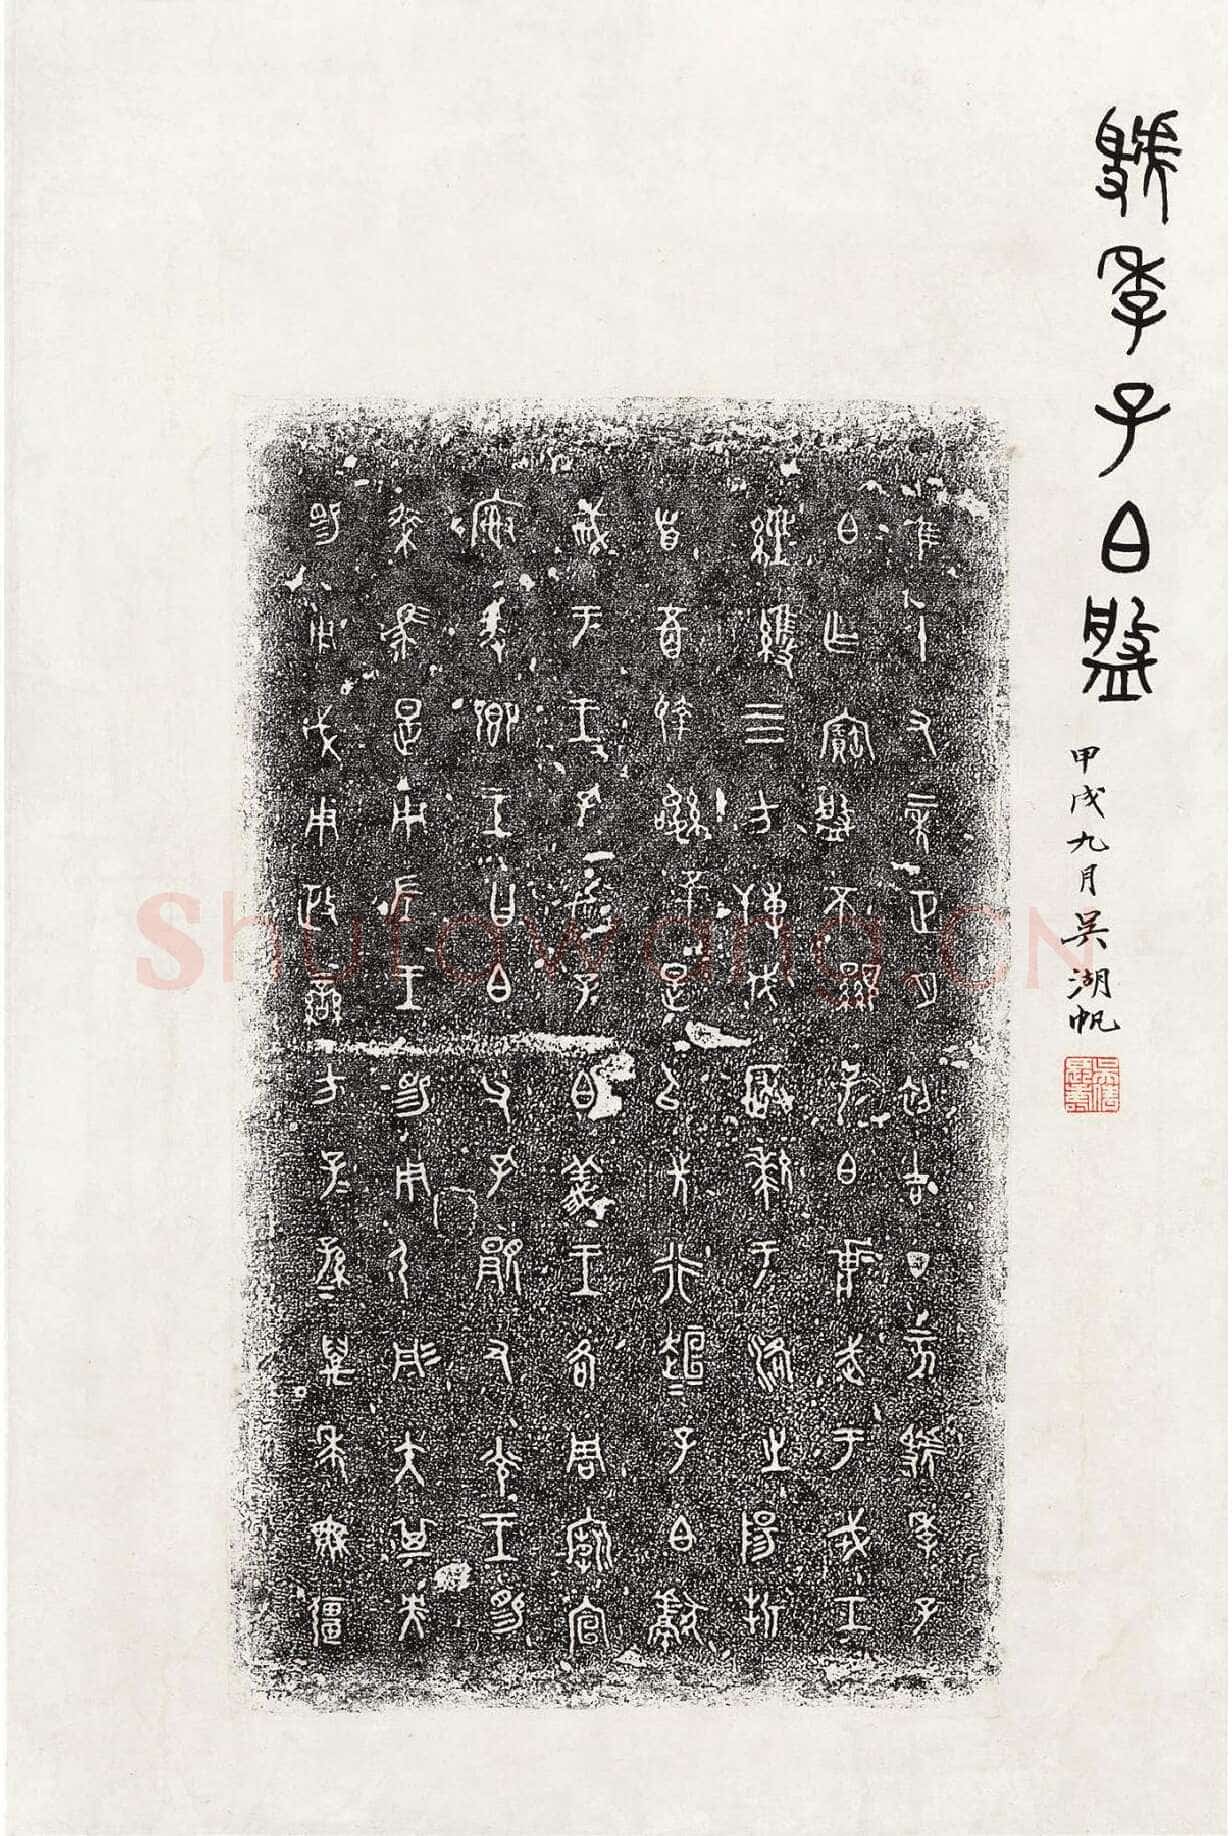 虢季子白盤
甲戌九月吳湖帆
隹十又二年正月初吉丁亥虢季子
白乍寶盤不顯子白壯武于戎工
經維四方搏伐玁狁于洛之陽折
首五百執訊五十是以先行桓〓子白獻
馘于王王孔加子白義王各周廟宣
榭爰鄉王曰白父孔顯又光王睗
乘馬是用左王睗用弓彤矢其央
睗用戉用政蠻方子〓孫〓萬年無疆
Shufawang.CN